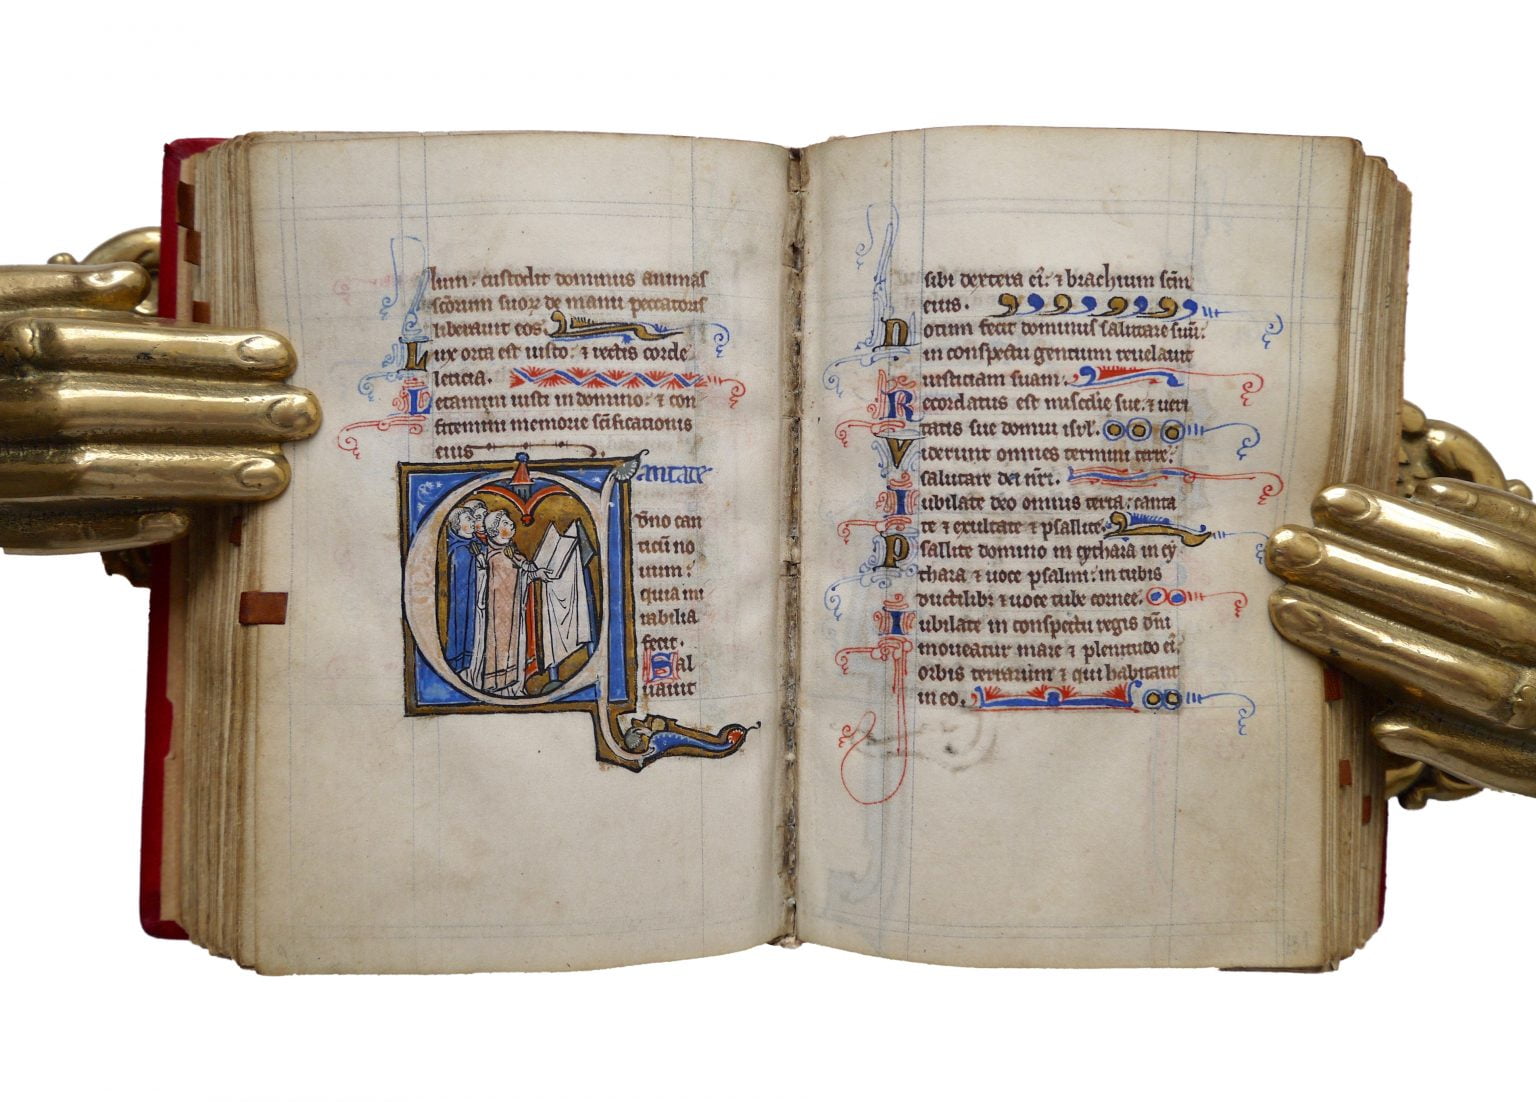 lum: custodit dominus animas
sc̄orum suoꝝ de manu peccatoris
liberauit eos.
Lux orta est iusto: ⁊ rectis corde
leticia.
Letamini iusti in domino: ⁊ con
fitemini memorie sc̄ificationis
eius
Cantate
dn̄o can
ticū no
uum:
quia mi
rabilia
fecit.
Sal
uauit
sibi dextera ei: ⁊ brachium scm̄
eius.
Notum fecit dominus salutare suū:
in conspectu gentium reuelauit
iusticiam suam.
Recordatus est mīsedie sue: ⁊ ueri
tatis sue domui isr̄l.
Viderunt omnes termini terre:
salutare dei nr̄i.
Iubilate deo omnis terra: canta
te ⁊ exultate ⁊ psallite.
Psallite domino in cythara in cy
thara ⁊ uoce psalmi: in tubis
ductilibꝫ ⁊ uoce tube cornee.
Iubilate in conspectu regis dn̄i
moueatur mare ⁊ plenitudo ei:
orbis terrarum ⁊ qui habitant
in eo.